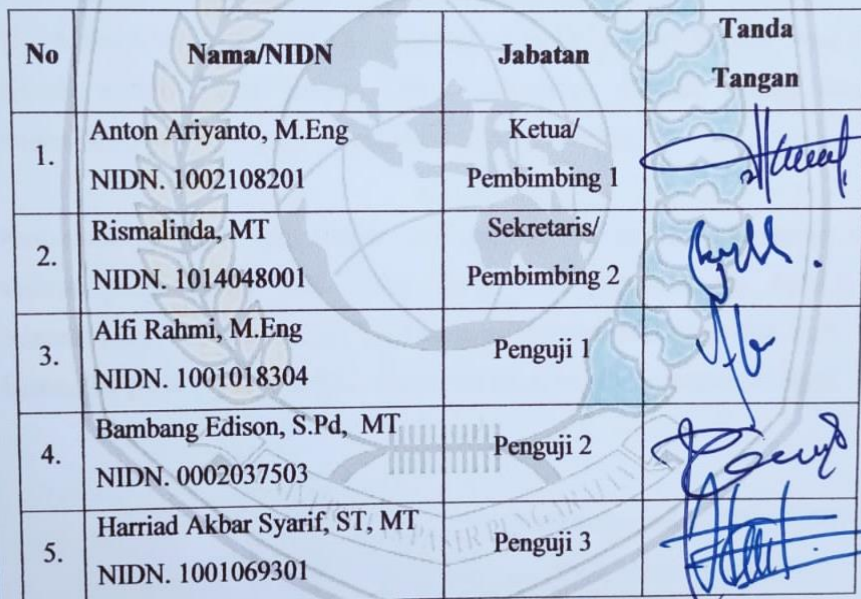 No
Nama/NIDN
Jabatan
Tanda
Tangan
1.
Anton Ariyanto, M.Eng
NIDN. 1002108201
Ketua/
Pembimbing 1
2.
Rismalinda, MT
NIDN. 1014048001
Sekretaris/
Pembimbing 2
3.
Alfi Rahmi, M.Eng
NIDN. 1001018304
Penguji 1
4.
Bambang Edison, S.Pd, MT
NIDN. 0002037503
Penguji 2
5.
Harriad Akbar Syarif, ST, MT
NIDN. 1001069301
Penguji 3